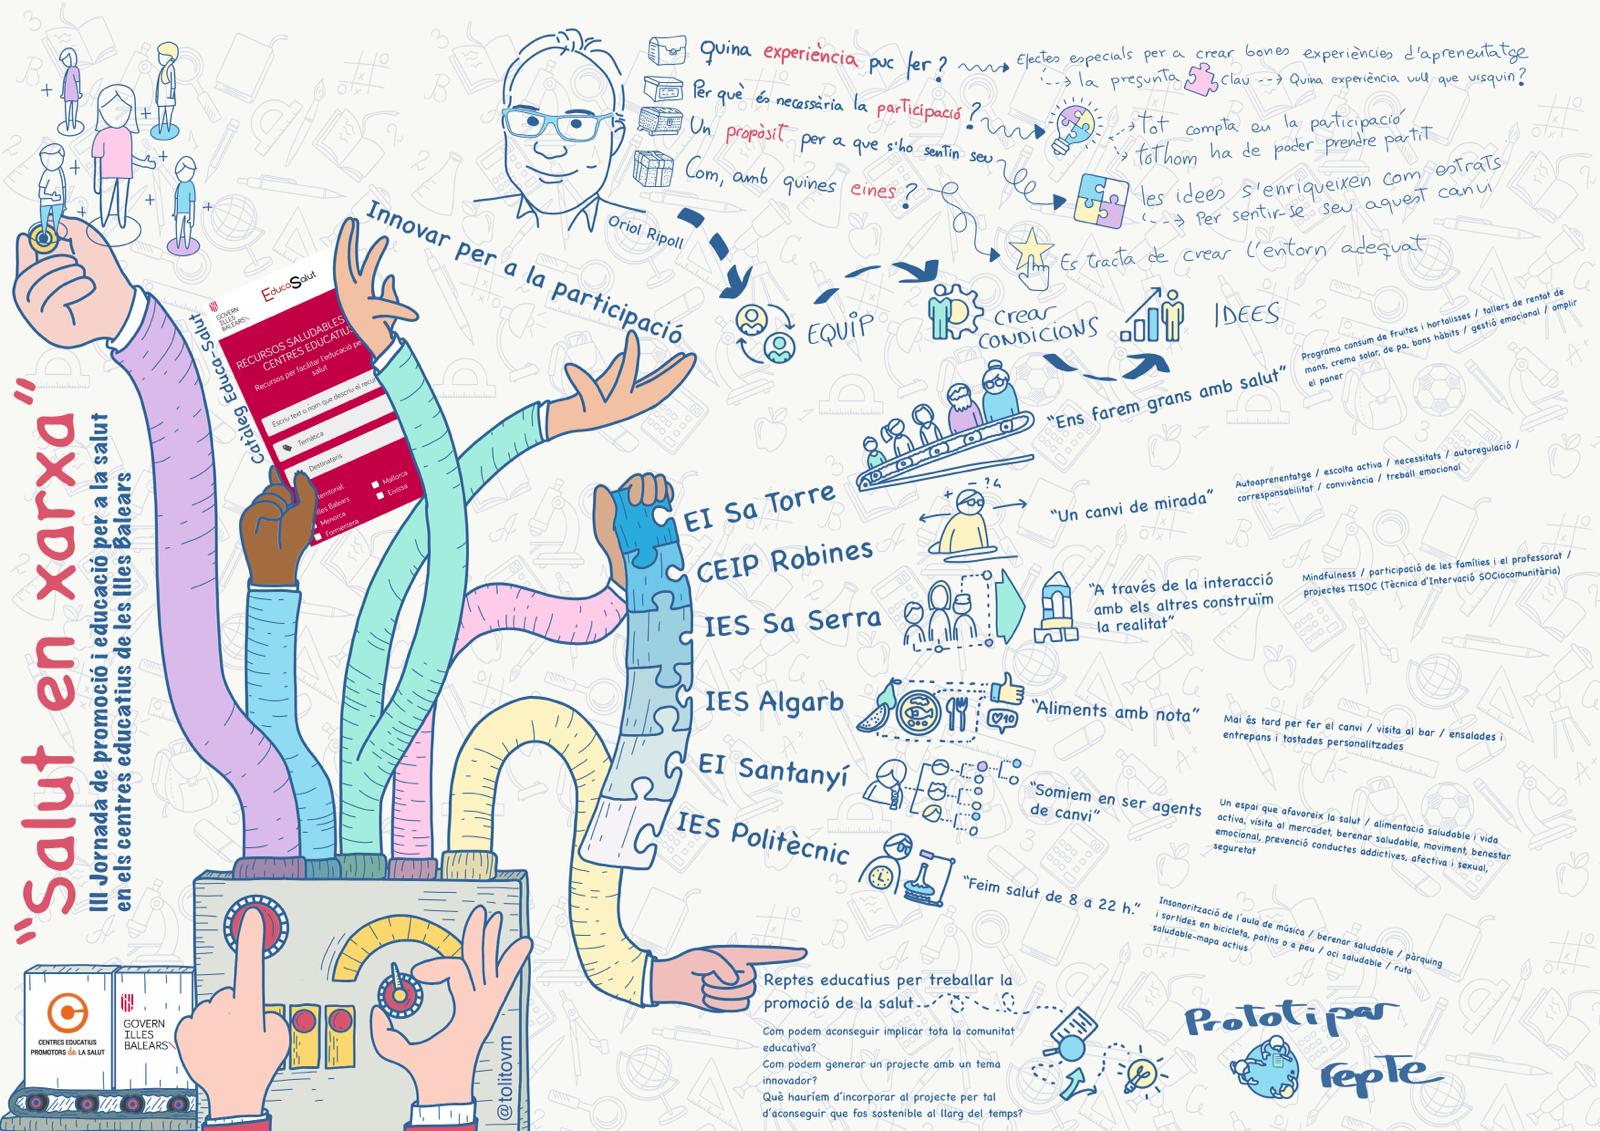 "Salut en xarxa"
III Jornada de promoció i educació per a la salut
en els centres educatius de les Illes Balears
Catàleg Educa-Salut
GOVERN
ILLES
BALEARS
EducaSalut
RECURSOS SALUDABLES
CENTRES EDUCATIUS
Recursos per facilitar l'educació pe
salut
Escriu text o nom que descriu el recur
Temàtica
Destinataris
territorial:
Illes Balears
Mallorca
Menorca
Eivissa
Formentera
Innovar per a la participació
Oriol Ripoll
Quina experiència puc fer?
Efectes especials per a crear bones experiències d'aprenentatge
la pregunta clau
Quina experiència vull que visquin?
Per què és necessària la participació?
Tot compta en la participació
tothom ha de poder prendre partit
Un propòsit per a que s'ho sentin seu
les idees s'enriqueixen com estrats
Per sentir-se seu aquest canvi
Com, amb quines eines?
Es tracta de crear l'entorn adequat
EQUIP
crear
CONDICIONS
IDEES
EI Sa Torre
"Ens farem grans amb salut"
Programa consum de fruites i hortalisses / tallers de rentat de
mans, crema solar, de pa, bons hàbits / gestió emocional / omplir
el paner
CEIP Robines
+ - ? 4
"Un canvi de mirada"
Autoaprenentatge / escolta activa / necessitats / autoregulació /
corresponsabilitat / convivència / treball emocional
IES Sa Serra
"A través de la interacció
amb els altres construïm
la realitat"
Mindfulness / participació de les famílies i el professorat /
projectes TISOC (Tècnica d'Intervació SOCiocomunitària)
IES Algarb
10
"Aliments amb nota"
Mai és tard per fer el canvi / visita al bar / ensalades i
entrepans i tostades personalitzades
EI Santanyí
"Somiem en ser agents
de canvi"
Un espai que afavoreix la salut / alimentació saludable i vida
activa, visita al mercadet, berenar saludable, moviment, benestar
emocional, prevenció conductes addictives, afectiva i sexual,
seguretat
IES Politècnic
"Feim salut de 8 a 22 h."
Insonorització de l'aula de música / berenar saludable / pàrquing
i sortides en bicicleta, patins o a peu / oci saludable / ruta
saludable-mapa actius
Reptes educatius per treballar la
promoció de la salut
Com podem aconseguir implicar tota la comunitat
educativa?
Com podem generar un projecte amb un tema
innovador?
Què hauríem d'incorporar al projecte per tal
d'aconseguir que fos sostenible al llarg del temps?
Prototipar
repte
CENTRES EDUCATIUS
PROMOTORS de LA SALUT
GOVERN
ILLES
BALEARS
@tolitovm